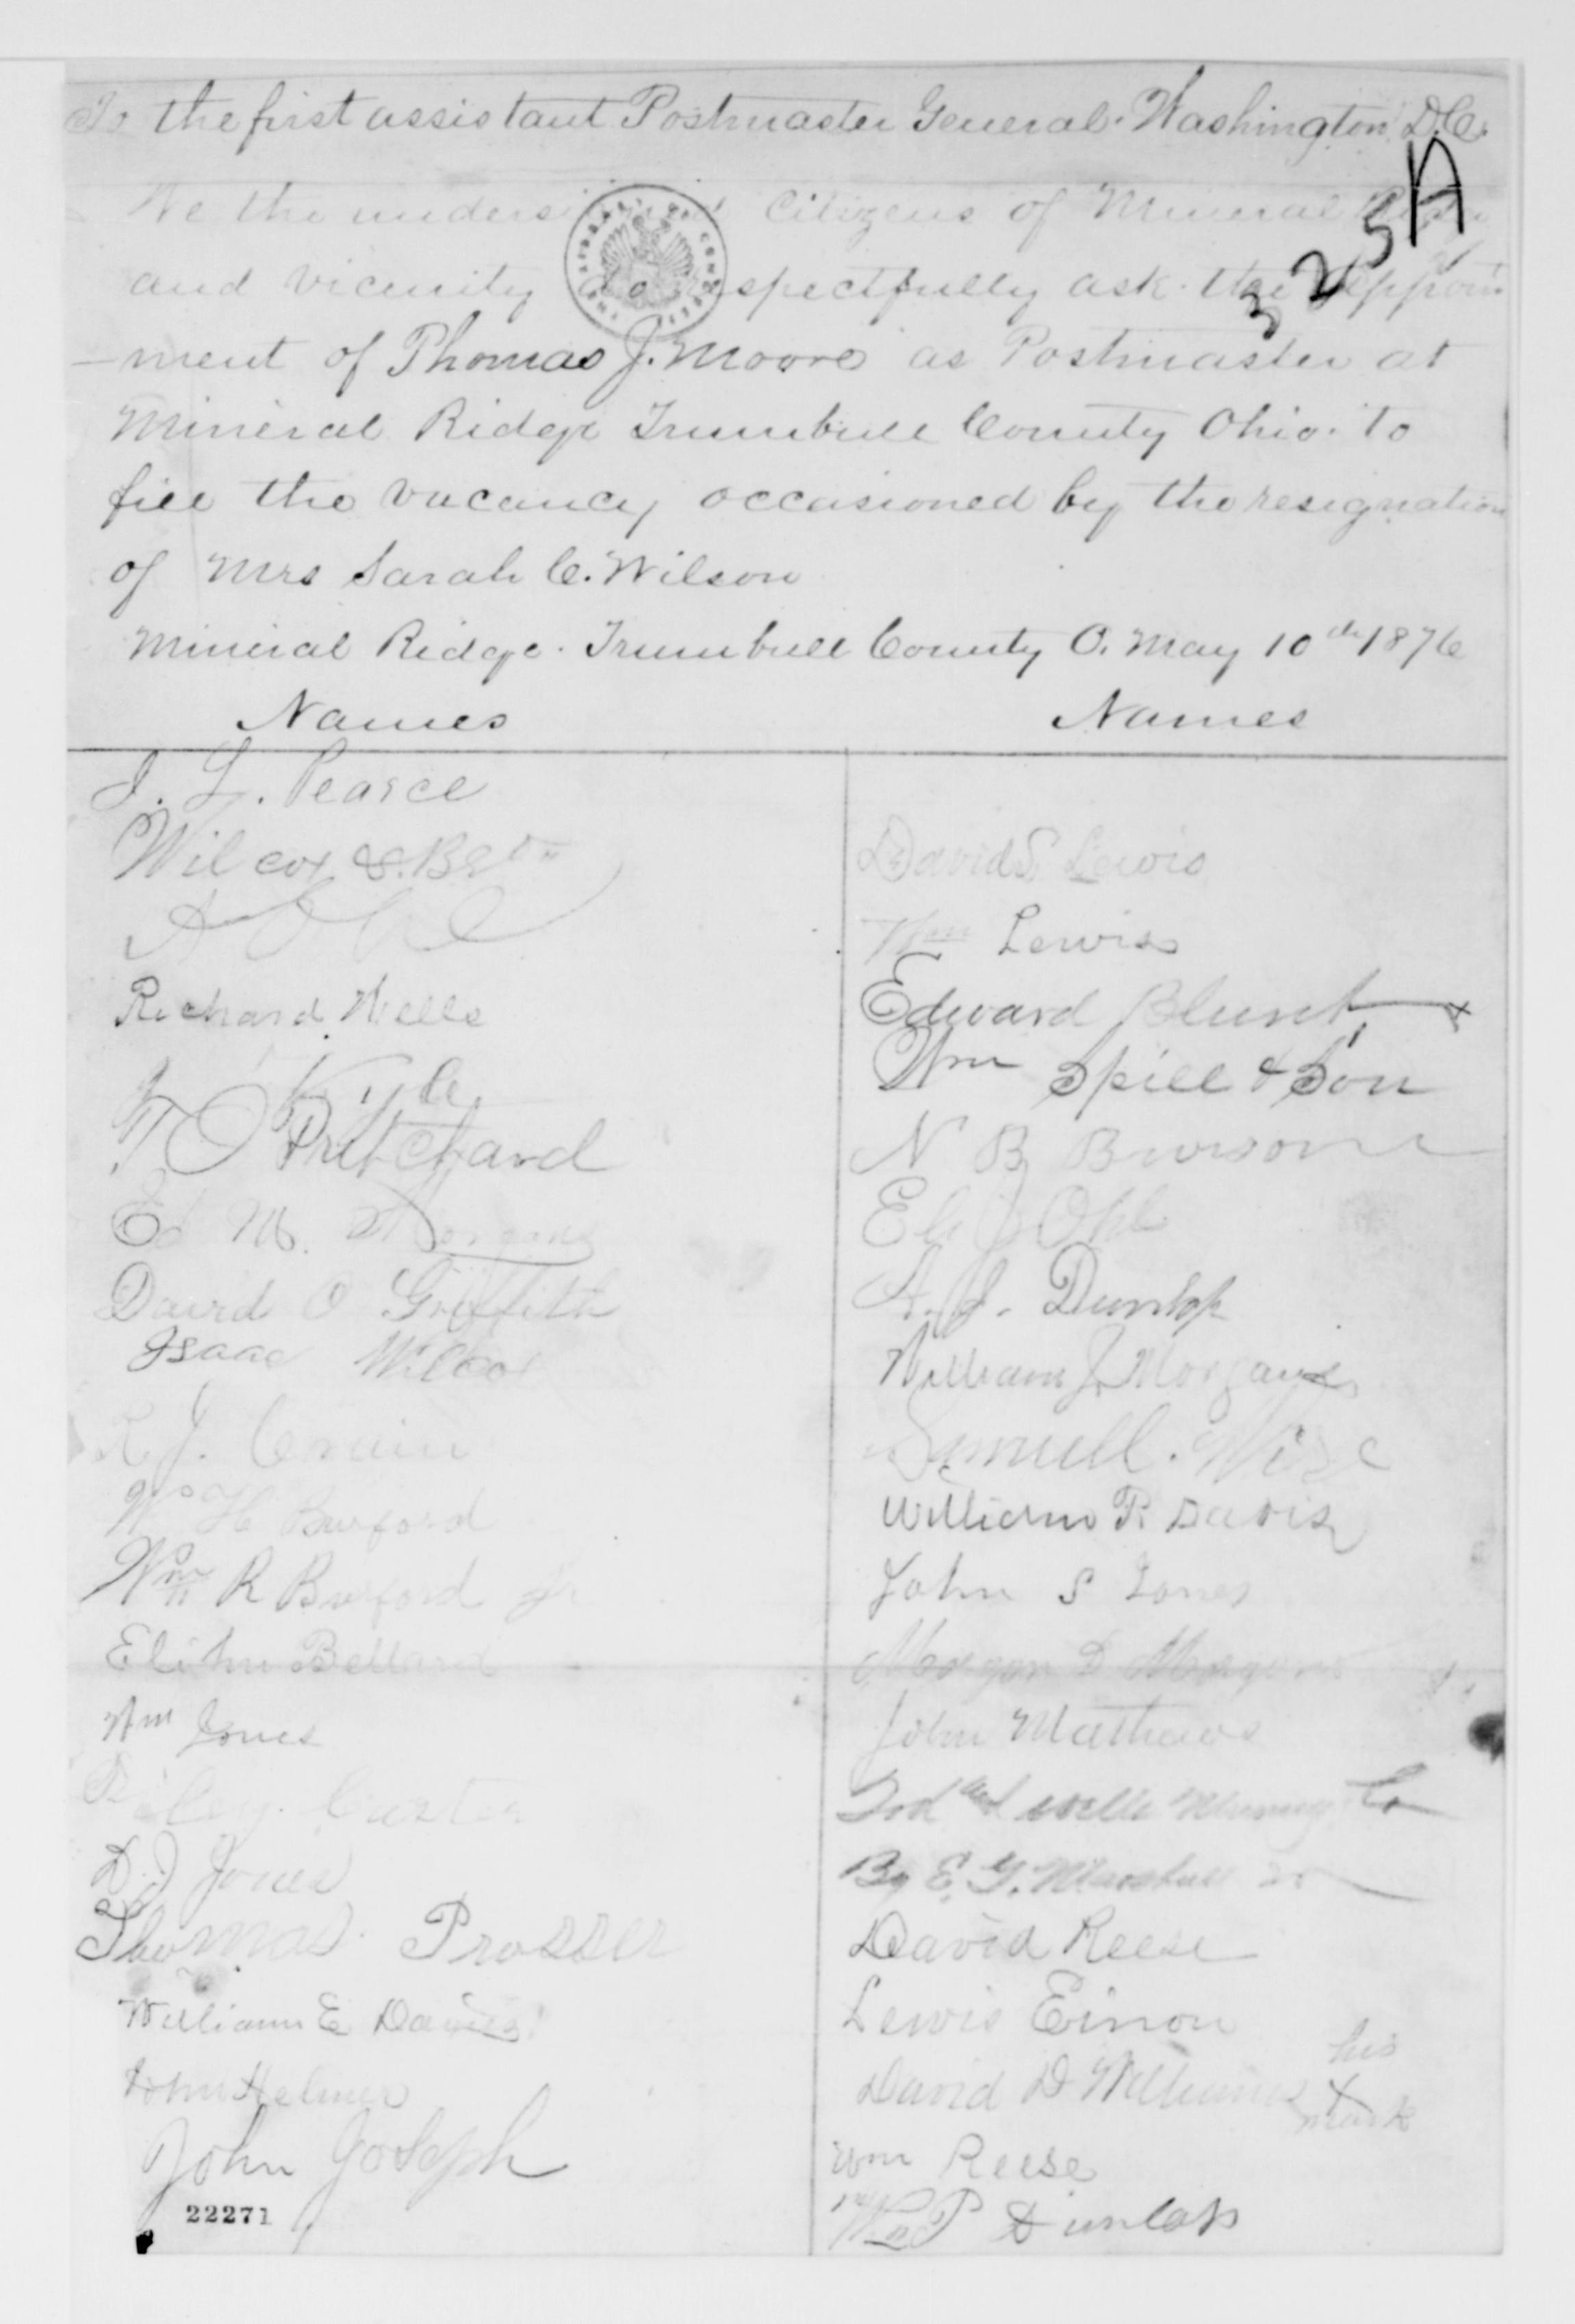 To the first assistant Postmaster General. Washington D.C.
325A
We the undersigned Citizens of Mineral Ridge
and vicinity do respectfully ask the appoint
-ment of Thomas J. Moore as Postmaster at
Mineral Ridge Trumbull County Ohio. to
fill the vacancy occasioned by the resignation
of Mrs Sarah C. Wilson
Mineral Ridge. Trumbull County O. May 10th 1876
Names
J. L. Pearce
Wilcox & Bro
Richard Wells
Kyle
T O Pritchard
Ed M.
David O Griffith
Isaac Wilcox
R J. Crain
H Burford
Wm R Burford Jr
Elihu
Wm Jones
D. J Jones
Thomas Prosser
William E Davis
John Helmer
John Joseph
22271
Names
David S. Lewis
Wm Lewis
Edward Blunt
Wm Spill & Son
N B
Eli J Ohl
A. J. Dunlap
William J. Morgans
Samuell. Wise
William R Davis
John S Jones
Morgan D Morgans
John Mathews
Tod and Wells Mining Co
By E. G. Marshall
David Reese
Lewis Einon
David D Williams his x mark
Wm Reese
Wm P Dunlap